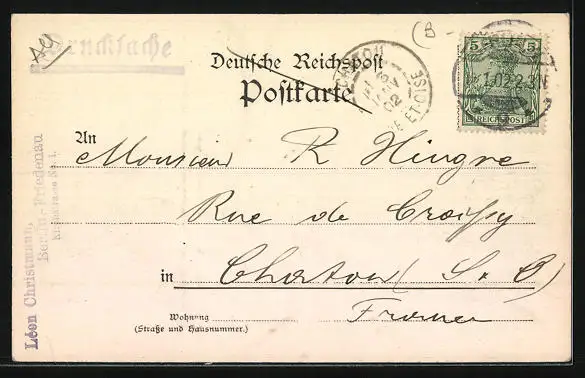 Drucksache
Deutsche Reichspost
Postkarte
5 5
REICHSPOST
CHATOU
JANV
02
ET-OISE
1.02.2-3N
An
Monsieur R Hingre
Rue de Croissy
in Chatou (S & O)
France
Wohnung
(Straße und Hausnummer.)
Léon Christmann,
Berlin-Friedenau